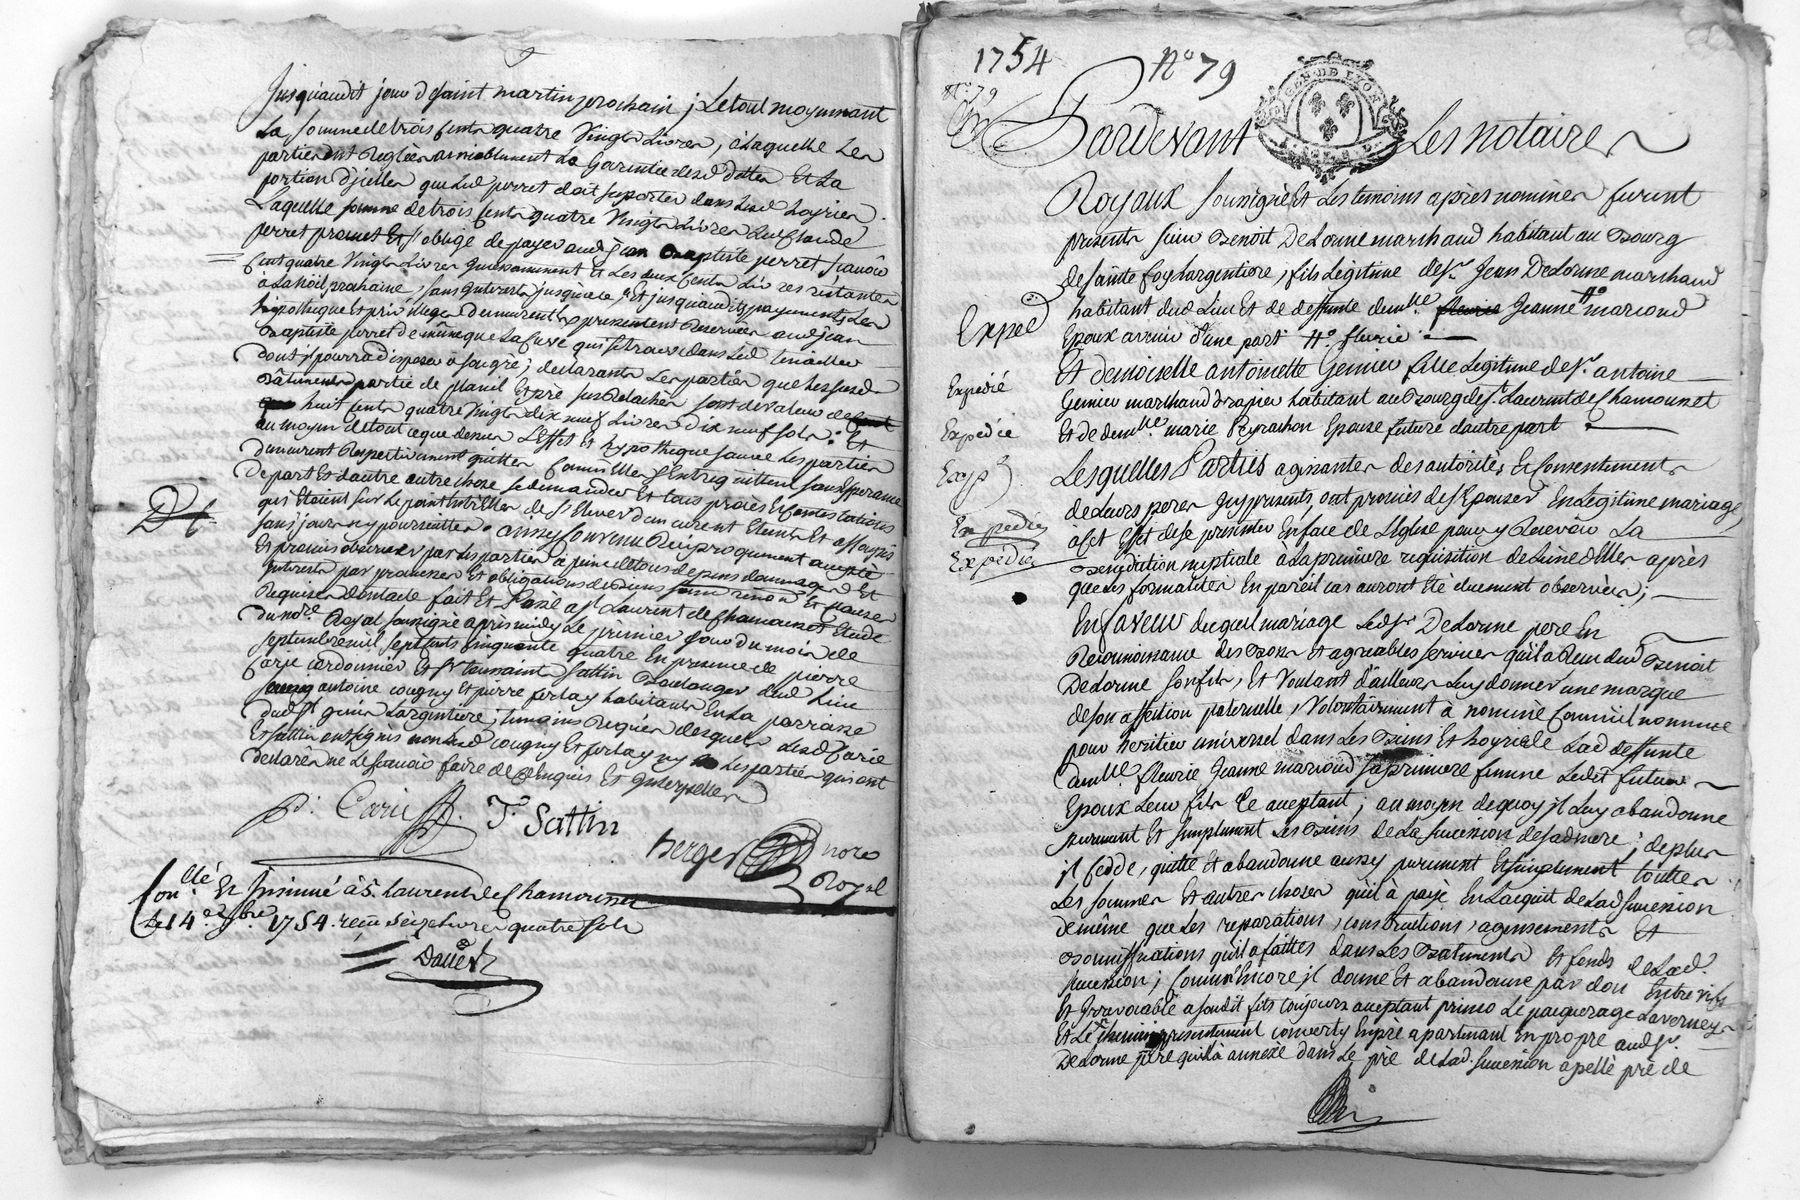 Jusquaudit jour de saint martin prochain ; Le tout moyennant
La somme de trois cents quatre Vingts Livres, a Laquelle Les
parties ont Reglées amiablement La Garentie desd dettes Et La
portion d'jcelles que Led perret doit suporter dans Lesd hoyries
Laquelle somme de trois cents quatre Vingts Livres Led Claude
perret promet Et s'oblige de payer aud jean Baptiste perret scavoir
Cent quatre Vingts Livres jncessamment Et Les deux Cents Livres restantes
a La Noël prochaine, sans jnterests jusqu'alors Et jusquaudits payements Les
hipotheque Et privilleges demeurent expressement Reservés aud jean
Baptiste perret de même que La Cuve qui se trouve dans Led
dont jl pourra disposer a son gré ; declarants Les parties que Les susd
Bâtiments partie de Et pré sus Relachés sont de valeur de
huit cents quatre Vingts dix neuf Livres dix neuf sols : Et
au moyen de tout ce que dessus L'effet Et hypotheque sauve Les parties
demeurent Respectivement quittes Comme Elles S'entrequittent sans Esperance
de part Et dautre autre chose se demander Et tous procés Et Contestations
qui Etoient sur Le point demeurent Eteints Et assoupis
sans jamais ny poursuittes. ainsy Convenu Réciproquement accepté
Et promis observer par Les parties a peine de tous depens dommages Et
jnterests par promesses Et obligations de Biens Et Clauses
Requises dont acte fait Et Passé a St Laurent de Chamousset Etude
du nore Royal soussigné apres midy Le premier jour du mois de
septembre mil sept cents cinquante quatre En presence de pierre
Carie cordonnier Et Sr toussaint Sattin Boulanger dud Lieu
antoine cougny Et pierre ferlay habitants En La parroisse
dud St genis Largentiere ; temoins Requis desquels Lesd Carie
Et Sattin ont signés non Lesd cougny Et ferlay ny Les parties qui ont
declarés ne Le scavoir faire de ce Enquis Et jnterpellés
P. Carie T. Sattin
Berger nore
Royal
Con.llé Et Insinué à S. Laurent de Chamousset
Le 14e 7bre 1754. reçu seize livres quatre sols
1754 No 79
No 79
GEN DE LYON
Pardevant Les notaires
Royaux soussignés Et Les temoins aprés nommés furent
presents sieur Benoit Delorme marchand habitant au Bourg
de sainte foy Largentiere, fils Légitime de Sr Jean Delorme marchand
habitant dud Lieu Et de deffunte demlle fleurie Jeanne #o marcoud
Epoux avenir d'une part #o fleurie
Exped
Et demoiselle antoinette Genier fille Legitime de Sr antoine
Expedié
Genier marchand drapier habitant au Bourg de St Laurent de Chamousset
Expedié
Et de demlle marie Peyrachon Epouse future dautre part
Exp
Lesquelles Parties agissantes des autorités Et Consentements
de Leurs peres jcy presents, ont promis de s'Epouser En Legitime mariage,
Expedié
a Cet Effet de se presenter En face de L'Eglise pour y Recevoir La
Expedié
Benediction nuptiale a La premiere requisition de L'une d'Elles aprés
que Les formalités En pareil cas auront Eté duement observées ;
En faveur duquel mariage Led Sr Delorme pere En
Reconnoissance des Bons Et agreables services qu'il a Reçu dud Benoit
Delorme son fils, Et Voulant d'ailleurs Luy donner une marque
de son affection paternelle, Volontairement a nommé Comme il nomme
pour heritier universel dans Les Biens Et hoyrie de Lad deffunte
demlle fleurie Jeanne marcoud sa premiere femme Ledit futur
Epoux Leur fils Ce acceptant ; au moyen de quoy jl Luy abandonne
purement Et simplement Les Biens de La succession de sad mere ; de plus
jl cede, quitte Et abandonne aussy purement Et simplement touttes
Les sommes Et autres choses qu'il a payé En L'acquit de Lad succession
de même que Les reparations, constructions, agensements Et
Bonniffications qu'il a faittes dans Les Batiments Et fonds de Lad.
succession ; Comme Encore jl donne Et abandonne par don Entre vifs
Et jrrevocable a sondit fils toujours acceptant primo Le paquerage
Et Le chemin presentement converty En pré apartenant En propre aud Sr.
Delorme pere qu'il a annexé dans Le pré de Lad. succession apellé pré de